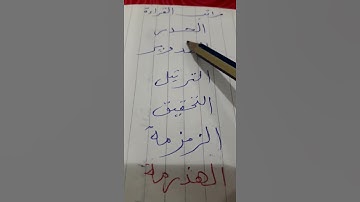 مراتب القراءة
الحدر
التدوير
الترتيل
التحقيق
الزمزمة
الهذرمة